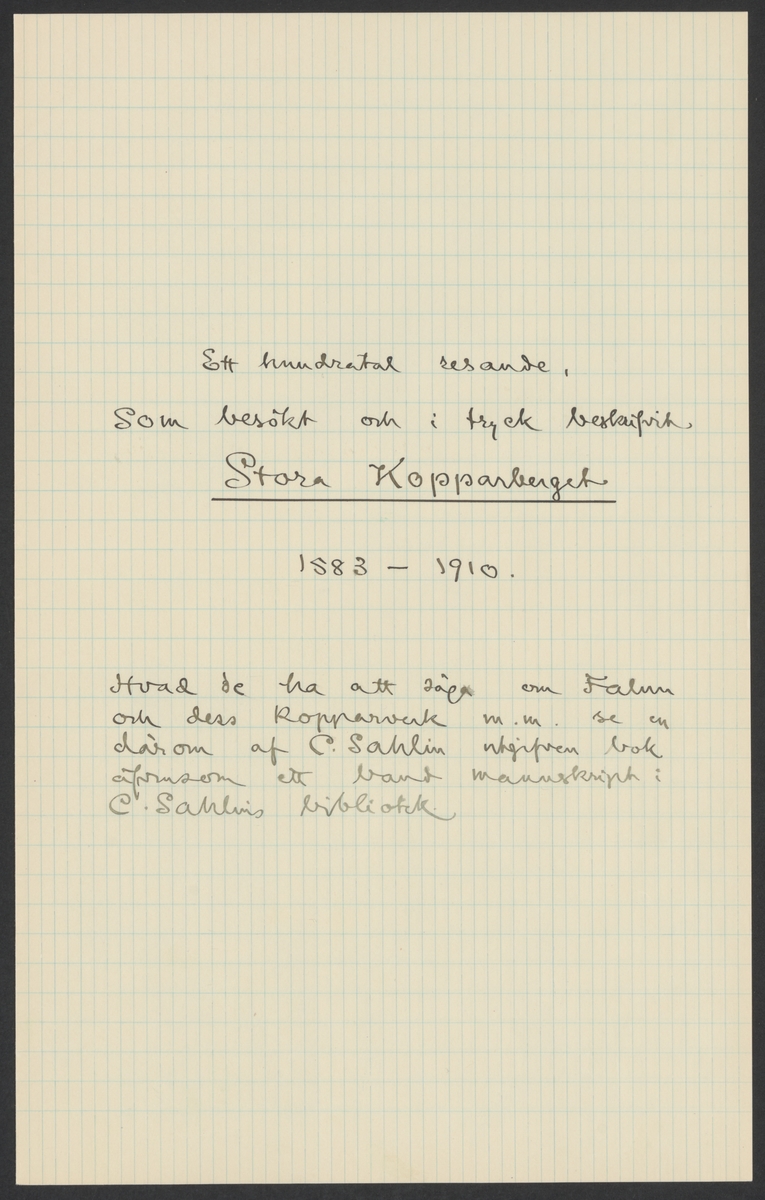 Ett hundratal resande,
som besökt och i tryck beskrifvit
Stora Kopparberget
1583 – 1910.
Hvad de ha att säga om Falun
och dess Kopparverk m.m. se en
därom af C. Sahlin utgifven bok
äfvensom ett band manuskript i
C. Sahlins bibliotek.